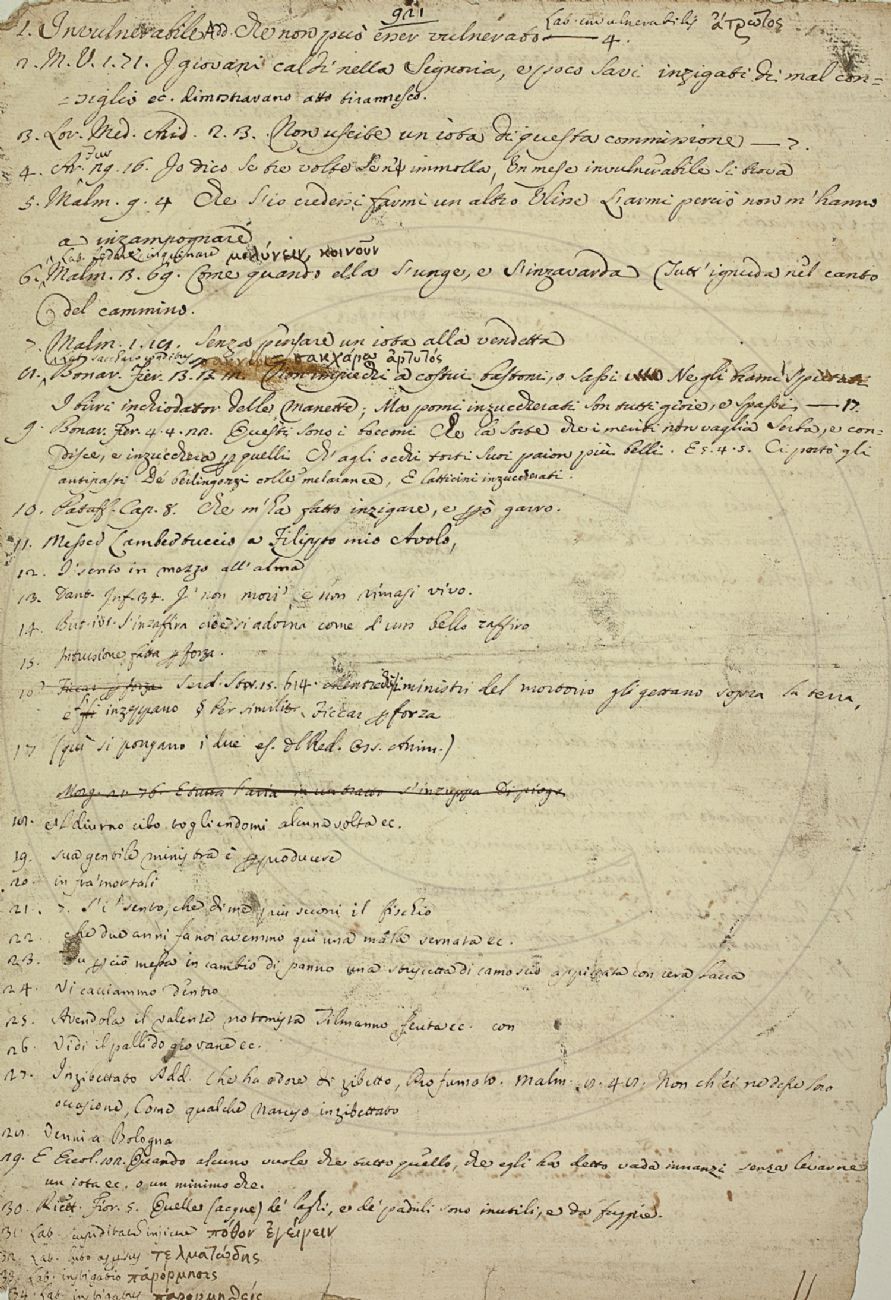 921
1. Invulnerabile Add. Che non può esser vulnerato —— 4. Lab. invulnerabilis ἄτρωτος
2. M. V. 1. 71. I giovani caldi nella Signoria, e poco savi inzigati di mal con=
=siglio ec. dimostravano atto tirannesco.
3. Lor. Med. Arid. 2. 3. Non uscite un iota di questa commissione — 7.
4. Ar. Fur. 29. 16. Io dico se tre volte se n' immolla, Un mese invulnerabile si trova
5. Malm. 9. 4 Che s'io credessi farmi un altro Ulisse L'armi perciò non m'hanno
a inzampognare
Lab. inquinare μολύνειν, κοινοῦν
6. Malm. 3. 69. Come quando ella s'unge, e s'inzavarda (Tutt' ignuda nel canto
del cammino.
7. Malm. 1. 19. Senza pensare un iota alla vendetta
Lab. saccharo conditus σακχάρῳ ἀρτυτός
8. Bonar. Fier. 3. 3. 12. Non mi piedi a costui bastoni, o sassi Ne gli hami
I birri inchiodator delle manette, Ma pomi inzuccherati son tutti gioie, e spassi — 17.
9. Bonar. Fier. 4. 4. 22. Questi sono i bocconi Che la sorte che i meriti non vaglia Serba, e con=
disce, e inzucchera p quelli Ch'agli occhi torti suoi paion più belli. E 5. 4. 5. Ci portò gli
antipasti De' berlingozzi colle melarance, E latticini inzuccherati.
10. Pataff. Cap. 8. Che m'ha fatto inzigare, e pò garro.
11. Messer Lambertuccio a Filippo mio Avolo,
12. I' sento in mezzo all'alma
13. Dant. Inf. 34. I' non mori' e non rimasi vivo.
14. But. ivi. S'inzaffira cioè si adorna come d'uno bello zaffiro
15. Intrusione fatta p forza.
16. Ficcar p forza Serd. Stor. 15. 614. ministri del mortorio gli gettano sopra la terra,
e inzeppano § Per similit. Ficcar p forza
17 (qui si pongano i due es. del Red. Oss. Anim.)
Morg. 20. 76. E tutta l'aria in un tratto s'inzuppa Di piogg
18. el diurno cibo togliendomi alcuna volta ec.
19. sua gentile ministra è p producere
20. in fra' mortali
21. 7. S'i' sento, che di me più scocni il fischio
22. che due anni fa noi avemmo qui una mala vernata ec.
23. p ciò messa in cambio di panno una striscetta di camoscio appiccata con cera lacca
24. Vi cacciammo dentro
25. Avendola il valente notomista Tilmanno ec. con
26. Vidi il pallido giovane ec.
27. Inzibettato Add. Che ha odore di zibetto, Profumato. Malm. 8. 48. Non ch'ei ne desse loro
occasione, Come qualche Narciso inzibettato
28. Venni a Bologna
29. E Ercol. 102. Quando alcuno vuole che tutto quello, che egli ha detto vada innanzi senza levarne
un iota ec. o un minimo che.
30. Ricett. Fior. 5. Quelle (acque) de' laghi, e de' paduli sono inutili, e da fuggire.
31. Lab. cupiditatem iniicere πόθον ἐγείρειν
32. Lab. τελματώδης
33. Lab. instigatio παρόρμησις
34. Lab. instigatus παρορμηθείς